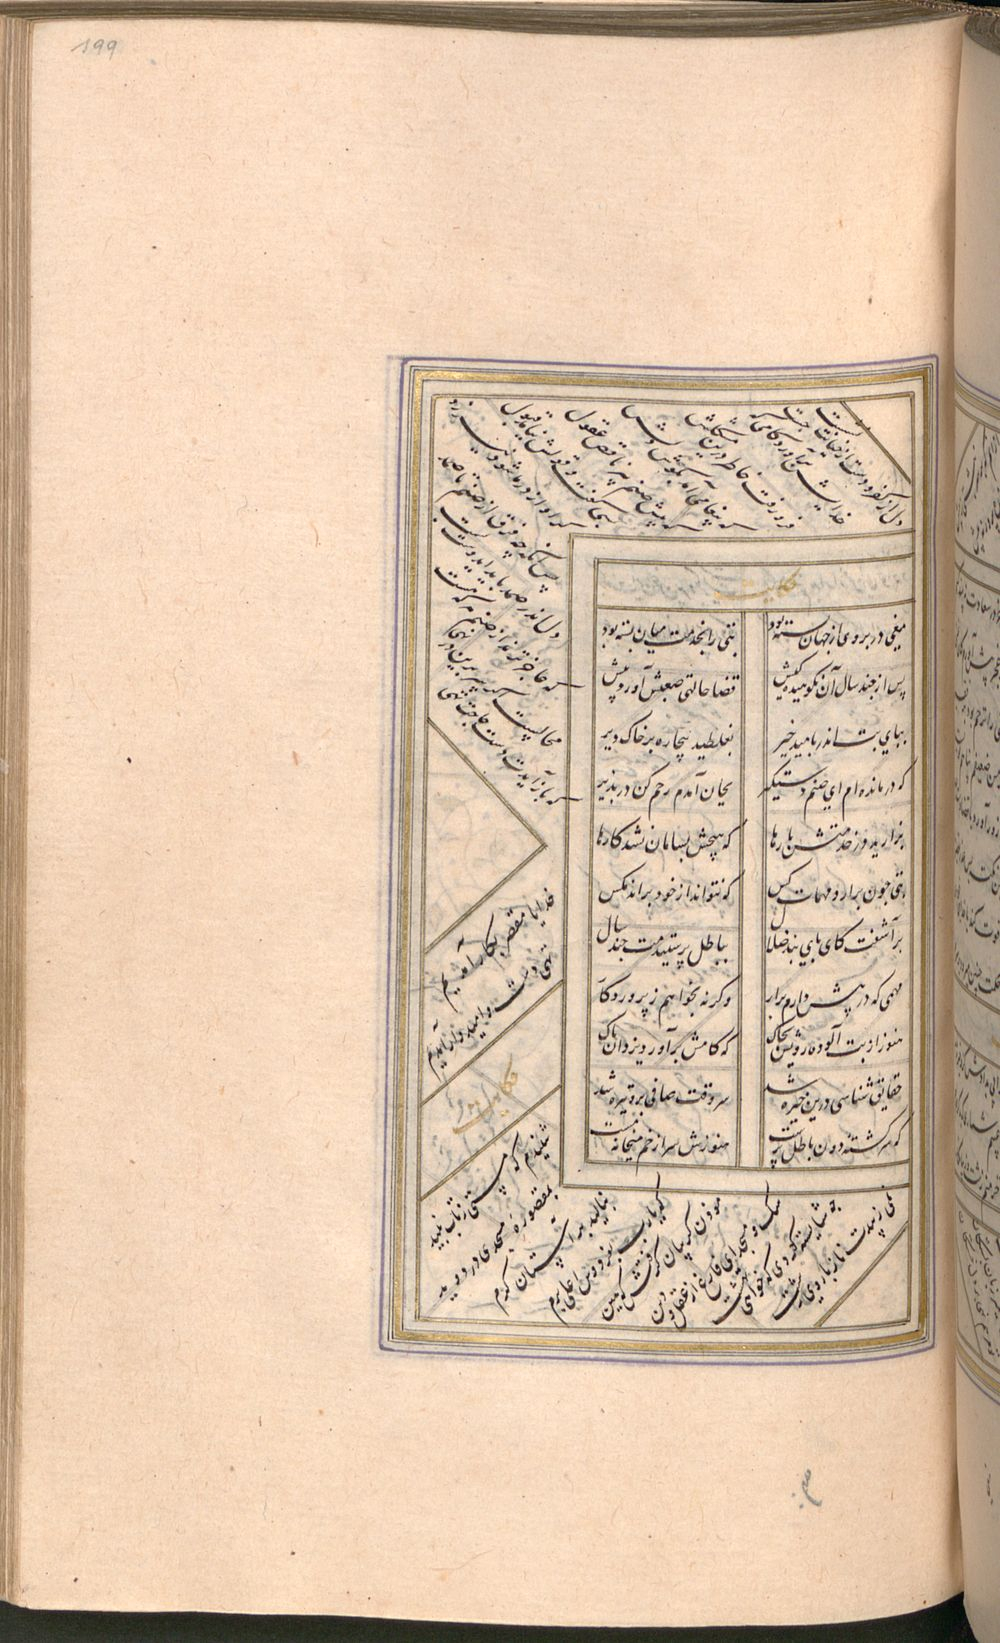 199
حکایت
مغی در بروی از جهان بسته بود
بتی را بخدمت میان بسته بود
پس از چند سال آن نکوهیده کیش
قضا حالتی صعبش آورد پیش
بپای بت اندر بامید خیر
بغلطید بیچاره بر خاک دیر
که درمانده ام ای صنم دستگیر
بجان آمدم رحم کن در پذیر
بزارید در خدمتش بارها
که هیچش بسامان نشد کارها
بتی چون برارد مهمات کس
که نتواند از خود براند مکس
برآشفت کای پای بند ضلال
بباطل پرستیدمت چند سال
مهمی که در پیش دارم برار
وکرنه بخواهم ز پروردکار
هنوز از بت آلوده رویش بخاک
که کامش برآورد یزدان پاک
حقایق شناسی درین خیره شد
سر وقت صافی برو تیره شد
که سرکشته دون باطل پرست
هنوزش سر از خم میخانه مست
دل از کفر و دست از خیانت نشست
خدایش برآورد کامی که جست
فرو رفت خاطر درین مشکلش
که پیغامی آمد بکوش دلش
که پیش صنم پیر ناقص عقول
بسی گفت و قولش نیامد قبول
پس آنکه چه فرق از صنم تا صمد
دل اندر صمد باید ای دوست بست
که عاجزترند از صنم هر که هست
محالست اگر سر برین در نهی
که باز آیدت دست حاجت تهی
خدایا مقصر بکار آمدیم
تهی دست و امیدوار آمدیم
حکایت
شنیدم که مستی ز تاب نبید
بمقصوره مسجدی در دوید
بنالید بر آستان کرم
که یا رب بفردوس اعلی برم
مؤذن کریبان کرفتش که هین
سک و مسجد ای فارغ از عقل و دین
چه شایسته کردی که خواهی بهشت
نمی زیبدت ناز با روی زشت